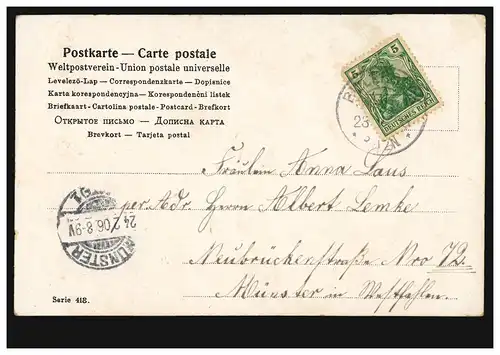 Postkarte — Carte postale
Weltpostverein - Union postale universelle
Levelező-Lap — Correspondenzkarte — Dopisnice
Karta korespondencyjna — Korespondenční listek
Briefkaart - Cartolina postale - Postcard - Brefkort
Открытое письмо — Дописна карта
Brevkort — Tarjeta postal
5 5
DEUTSCHES REICH
23
Fräulein Anna Laus
per Adr. Herrn Albert Lemke
Neubrückenstraße Nro 72.
Münster in Westfahlen.
MÜNSTER
24.2.06.8-9V
Serie 418.